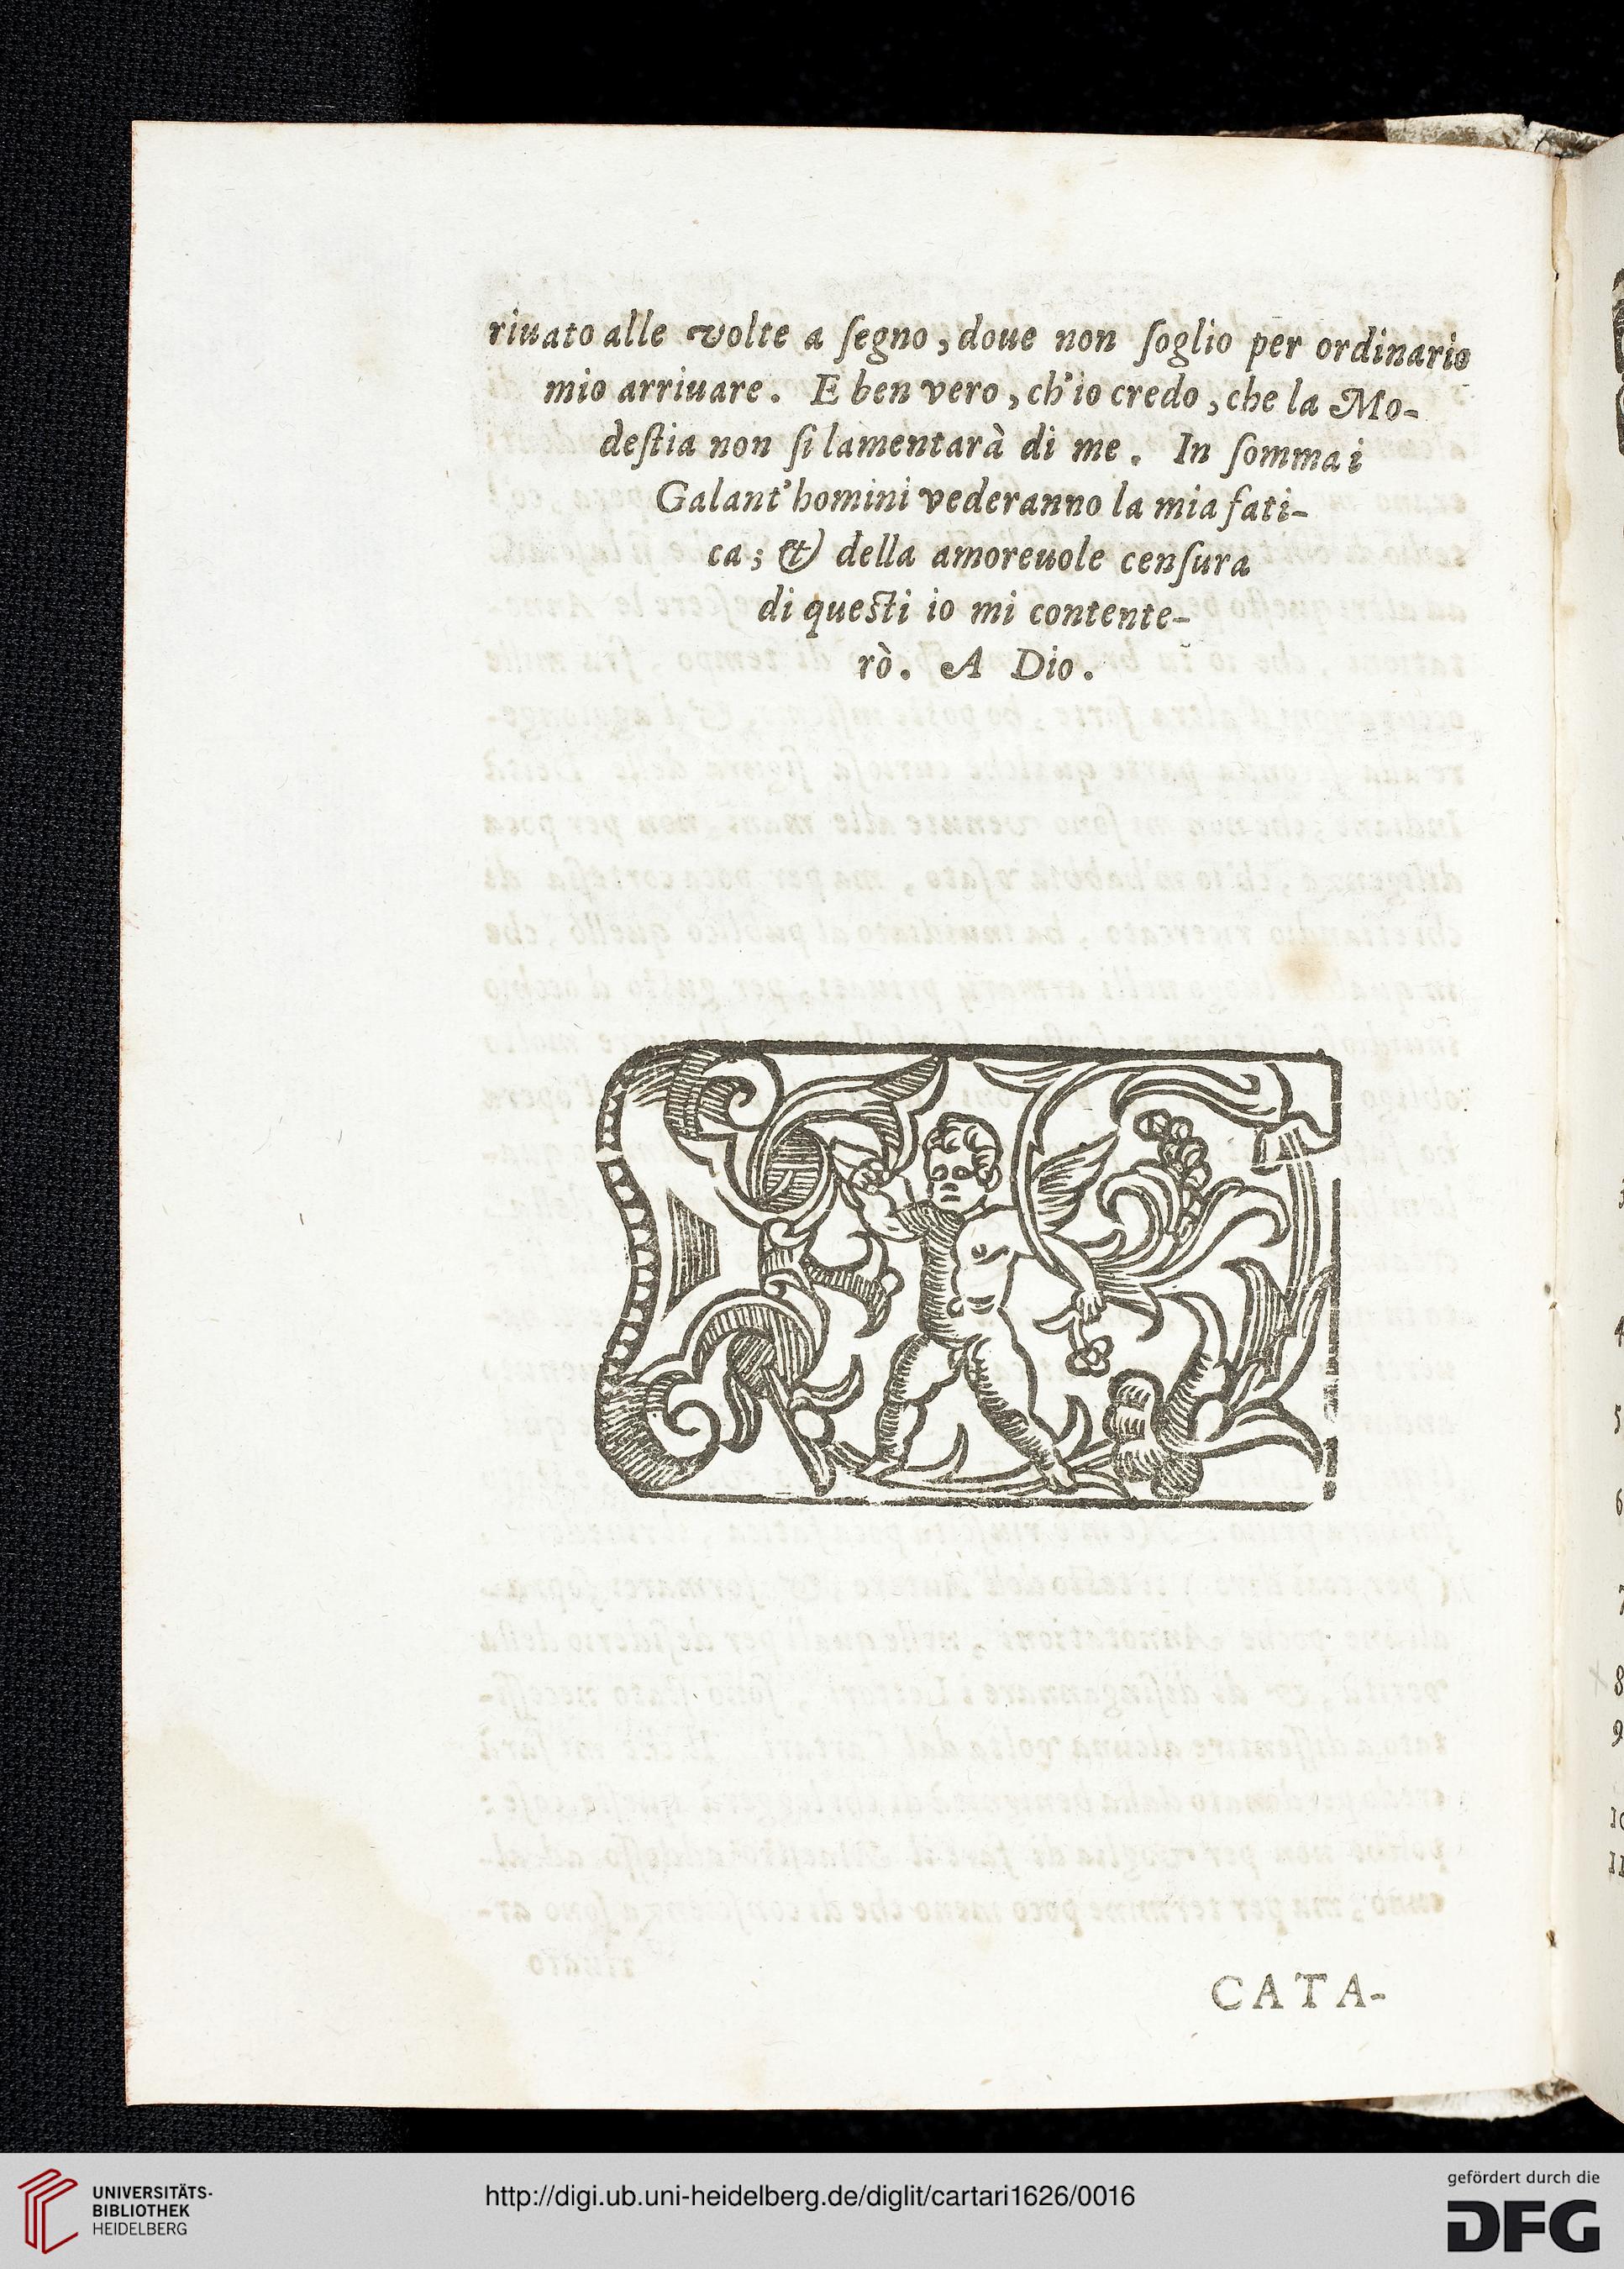 riuato alle volte a ſegno, doue non ſoglio per ordinario
mio arriuare. E ben vero, ch'io credo, che la Mo-
deſtia non ſi lamentarà di me. In ſomma i
Galant'homini vederanno la mia fati-
ca; & della amoreuole cenſura
di queſti io mi contente-
rò. A Dio.
CATA-
4
5
6
7
8
9
10
11
UNIVERSITÄTS-
BIBLIOTHEK
HEIDELBERG
http://digi.ub.uni-heidelberg.de/diglit/cartari1626/0016
gefördert durch die
DFG